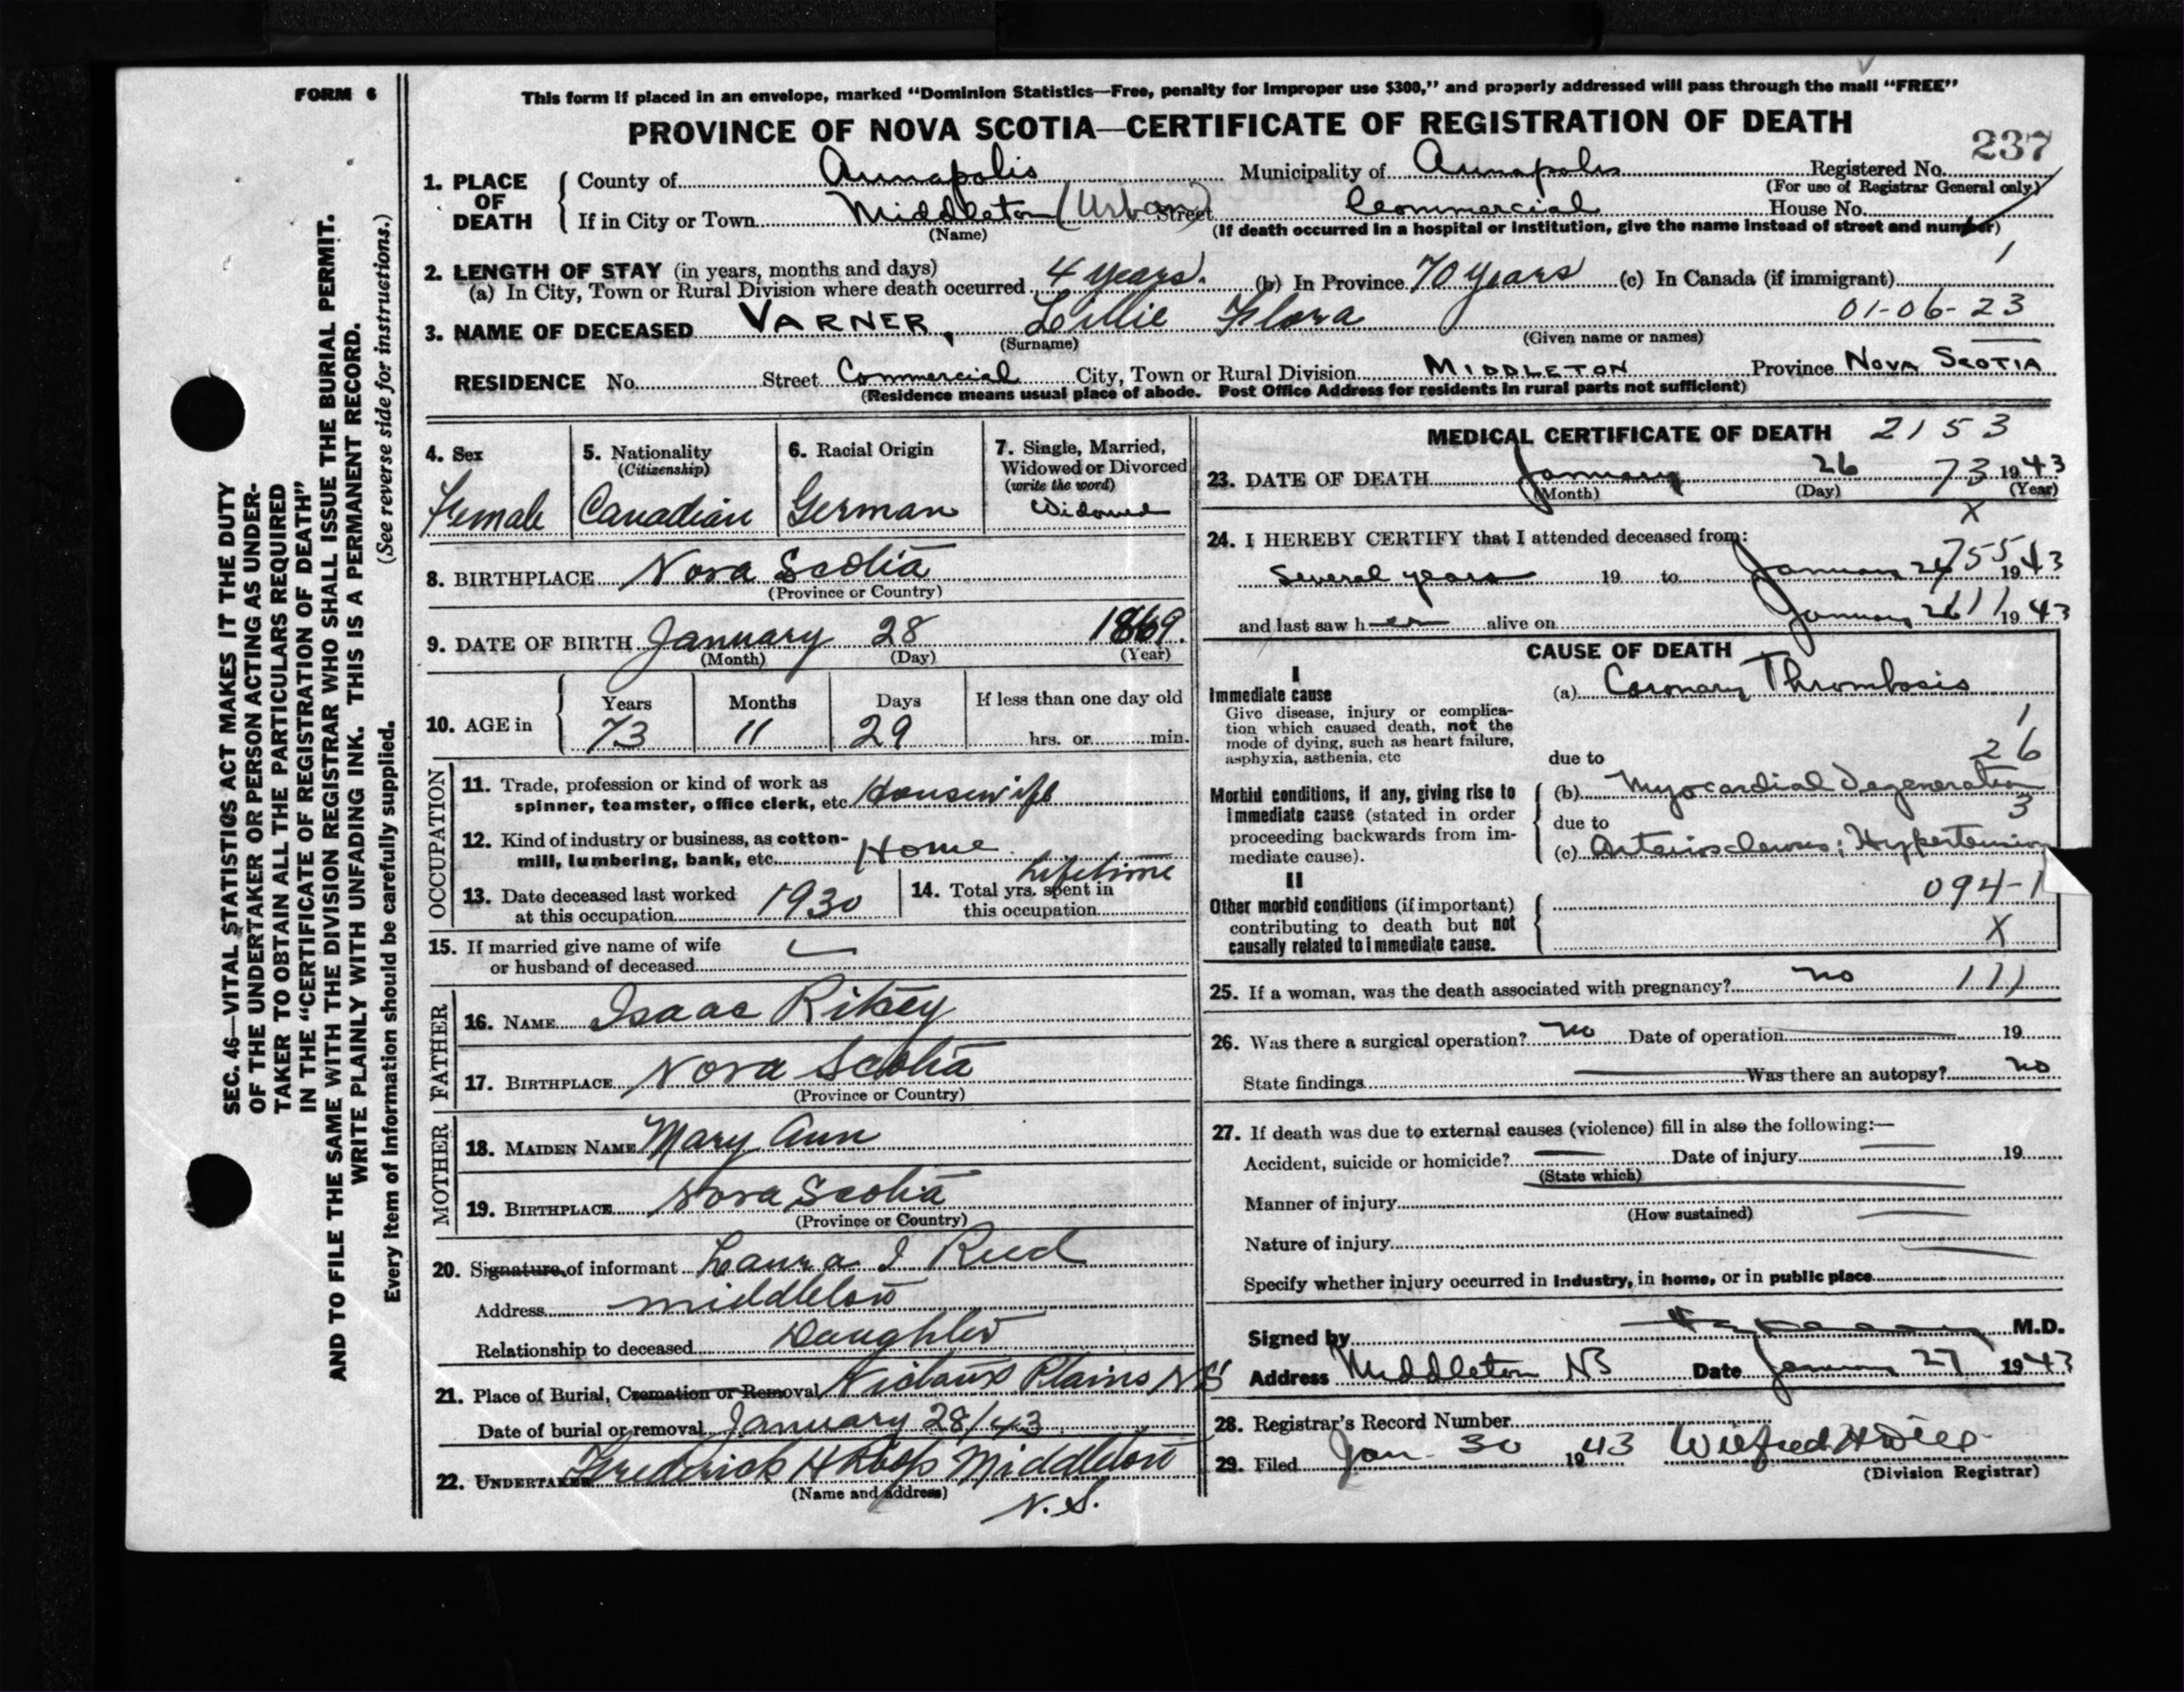 FORM 6
This form if placed in an envelope, marked “Dominion Statistics—Free, penalty for improper use $300,” and properly addressed will pass through the mail “FREE”
PROVINCE OF NOVA SCOTIA—CERTIFICATE OF REGISTRATION OF DEATH
237
1. PLACE OF DEATH
County of Annapolis Municipality of Annapolis Registered No.
(For use of Registrar General only)
If in City or Town Middleton (Urban) Street Commercial House No.
(Name) (If death occurred in a hospital or institution, give the name instead of street and number)
2. LENGTH OF STAY (in years, months and days) 1
(a) In City, Town or Rural Division where death occurred 4 years. (b) In Province 70 years (c) In Canada (if immigrant)
01-06-23
3. NAME OF DECEASED VARNER, Lillie Flora
(Surname) (Given name or names)
RESIDENCE No. Street Commercial City, Town or Rural Division MIDDLETON Province NOVA SCOTIA
(Residence means usual place of abode. Post Office Address for residents in rural parts not sufficient)
4. Sex Female
5. Nationality (Citizenship) Canadian
6. Racial Origin German
7. Single, Married, Widowed or Divorced (write the word) Widowed
8. BIRTHPLACE Nova Scotia
(Province or Country)
9. DATE OF BIRTH January 28 1869.
(Month) (Day) (Year)
10. AGE in Years 73 Months 11 Days 29 If less than one day old hrs. or min.
OCCUPATION
11. Trade, profession or kind of work as spinner, teamster, office clerk, etc. Housewife
12. Kind of industry or business, as cotton-mill, lumbering, bank, etc. Home
13. Date deceased last worked at this occupation 1930
14. Total yrs. spent in this occupation Lifetime
15. If married give name of wife or husband of deceased
FATHER
16. NAME Isaac
17. BIRTHPLACE Nova Scotia
(Province or Country)
MOTHER
18. MAIDEN NAME Mary Ann
19. BIRTHPLACE Nova Scotia
(Province or Country)
20. Signature of informant Laura I Reed
Address Middleton
Relationship to deceased Daughter
21. Place of Burial, Cremation or Removal Nictaux Plains NS
Date of burial or removal January 28/43
22. UNDERTAKER Frederick H Middleton
(Name and address)
N.S.
MEDICAL CERTIFICATE OF DEATH 2153
23. DATE OF DEATH January 26 73 1943
(Month) (Day) (Year)
X
24. I HEREBY CERTIFY that I attended deceased from:
Several years 19 to January 26 755 1943
and last saw her alive on January 26 111 1943
CAUSE OF DEATH
I
Immediate cause
Give disease, injury or complication which caused death, not the mode of dying, such as heart failure, asphyxia, asthenia, etc
(a) Coronary Thrombosis
1
26
due to
Morbid conditions, if any, giving rise to immediate cause (stated in order proceeding backwards from immediate cause).
(b) Myocardial Degeneration
3
due to
(c) Arteriosclerosis; Hypertension
II
094-1
Other morbid conditions (if important) contributing to death but not causally related to immediate cause.
X
25. If a woman, was the death associated with pregnancy? no 111
26. Was there a surgical operation? no Date of operation 19
State findings Was there an autopsy? no
27. If death was due to external causes (violence) fill in also the following:—
Accident, suicide or homicide? Date of injury 19
(State which)
Manner of injury
(How sustained)
Nature of injury
Specify whether injury occurred in industry, in home, or in public place
Signed by M.D.
Address Middleton NS Date January 27 1943
28. Registrar's Record Number
29. Filed Jan 30 1943 Wilfred
(Division Registrar)
SEC. 46—VITAL STATISTICS ACT MAKES IT THE DUTY
OF THE UNDERTAKER OR PERSON ACTING AS UNDER-
TAKER TO OBTAIN ALL THE PARTICULARS REQUIRED
IN THE “CERTIFICATE OF REGISTRATION OF DEATH”
AND TO FILE THE SAME WITH THE DIVISION REGISTRAR WHO SHALL ISSUE THE BURIAL PERMIT.
WRITE PLAINLY WITH UNFADING INK. THIS IS A PERMANENT RECORD.
Every item of information should be carefully supplied. (See reverse side for instructions.)